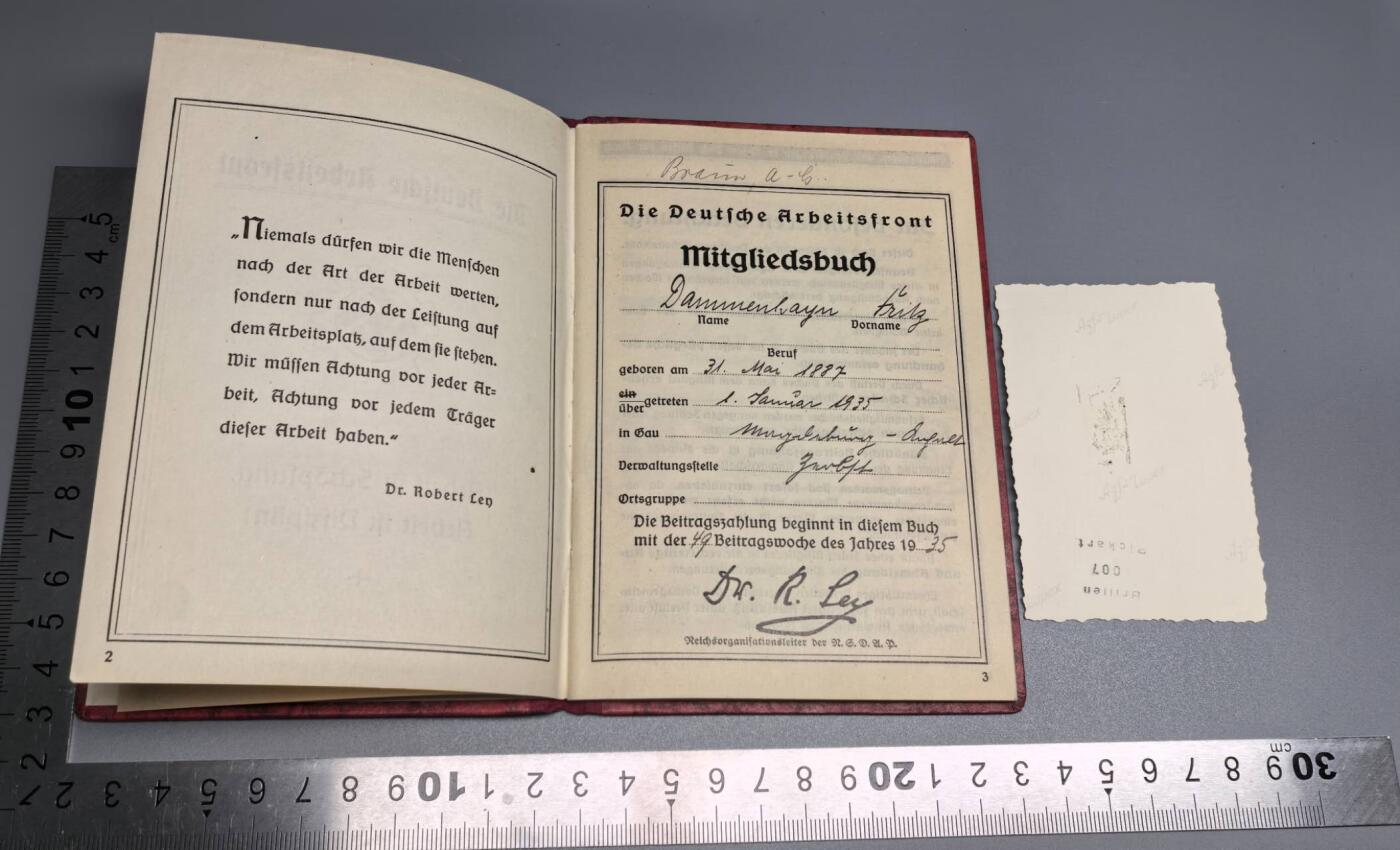 „Niemals dürfen wir die Menschen
nach der Art der Arbeit werten,
sondern nur nach der Leistung auf
dem Arbeitsplatz, auf dem sie stehen.
Wir müssen Achtung vor jeder Ar-
beit, Achtung vor jedem Träger
dieser Arbeit haben.“
Dr. Robert Ley
2
Braun, A-C.
Die Deutsche Arbeitsfront
Mitgliedsbuch
Dammenhayn Fritz
Name Vorname
Beruf
geboren am 31. Mai 1887
ein
übergetreten 1. Januar 1935
in Gau Magdeburg - Anhalt
Verwaltungsstelle Zerbst
Ortsgruppe
Die Beitragszahlung beginnt in diesem Buch
mit der 49 Beitragswoche des Jahres 19 35
Dr. R. Ley
Reichsorganisationsleiter der N.S.D.A.P.
3
Brillen
007
Pickart
5 cm 4 3 2 1 10 9 8 7 6 5 4 3 2
2 3 4 5 6 7 8 9 10 1 2 3 4 5 6 7 8 9 20 1 2 3 4 5 6 7 8 9 30
cm